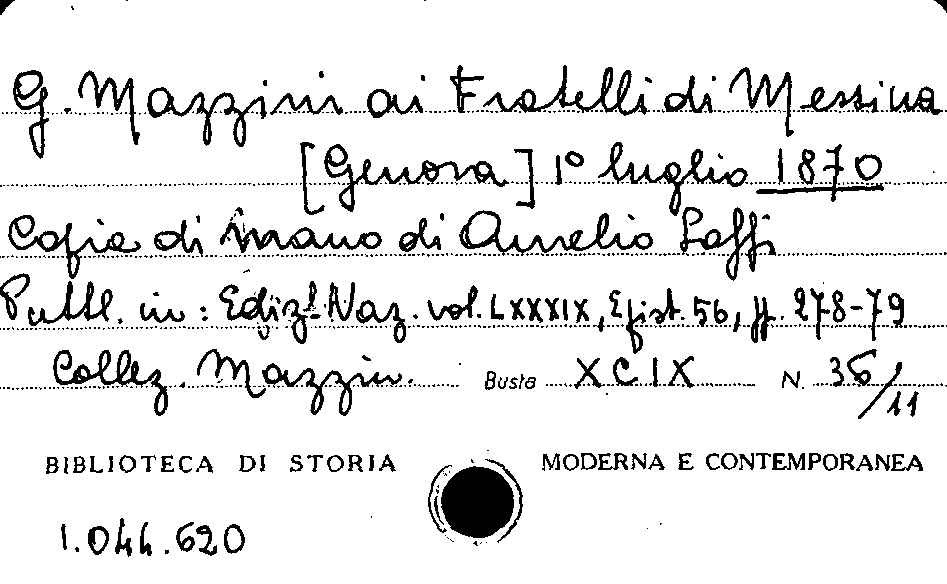 G. Mazzini ai Fratelli di Messina
[Genova] 1° luglio 1870
Copia di mano di Aurelio Saffi
Pubbl. in: Ediz. Naz. vol. LXXXIX, Epist. 56, pp. 278-79
Collez. Mazzin. Busta XCIX N. 36/11
BIBLIOTECA DI STORIA MODERNA E CONTEMPORANEA
1.044.620